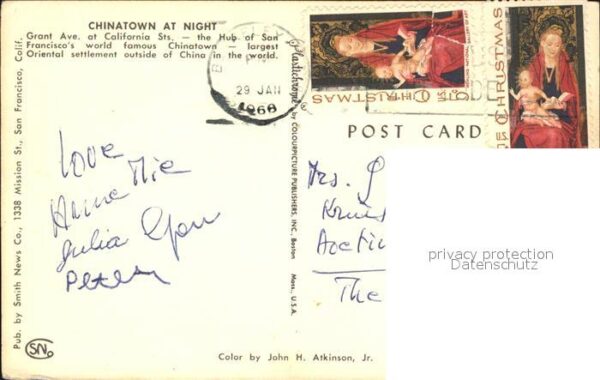 CHINATOWN AT NIGHT
Grant Ave. at California Sts. — the Hub of San
Francisco's world famous Chinatown — largest
Oriental settlement outside of China in the world.
Pub. by Smith News Co., 1338 Mission St., San Francisco, Calif.
SN
29 JAN
1968
Plastichrome ® by COLOURPICTURE PUBLISHERS, INC., Boston
Mass., U.S.A.
CHRISTMAS
5c
CHRISTMAS
POST CARD
Love
Anne Mie
Julia
Peter
Mrs.
The
privacy protection
Datenschutz
Color by John H. Atkinson, Jr.